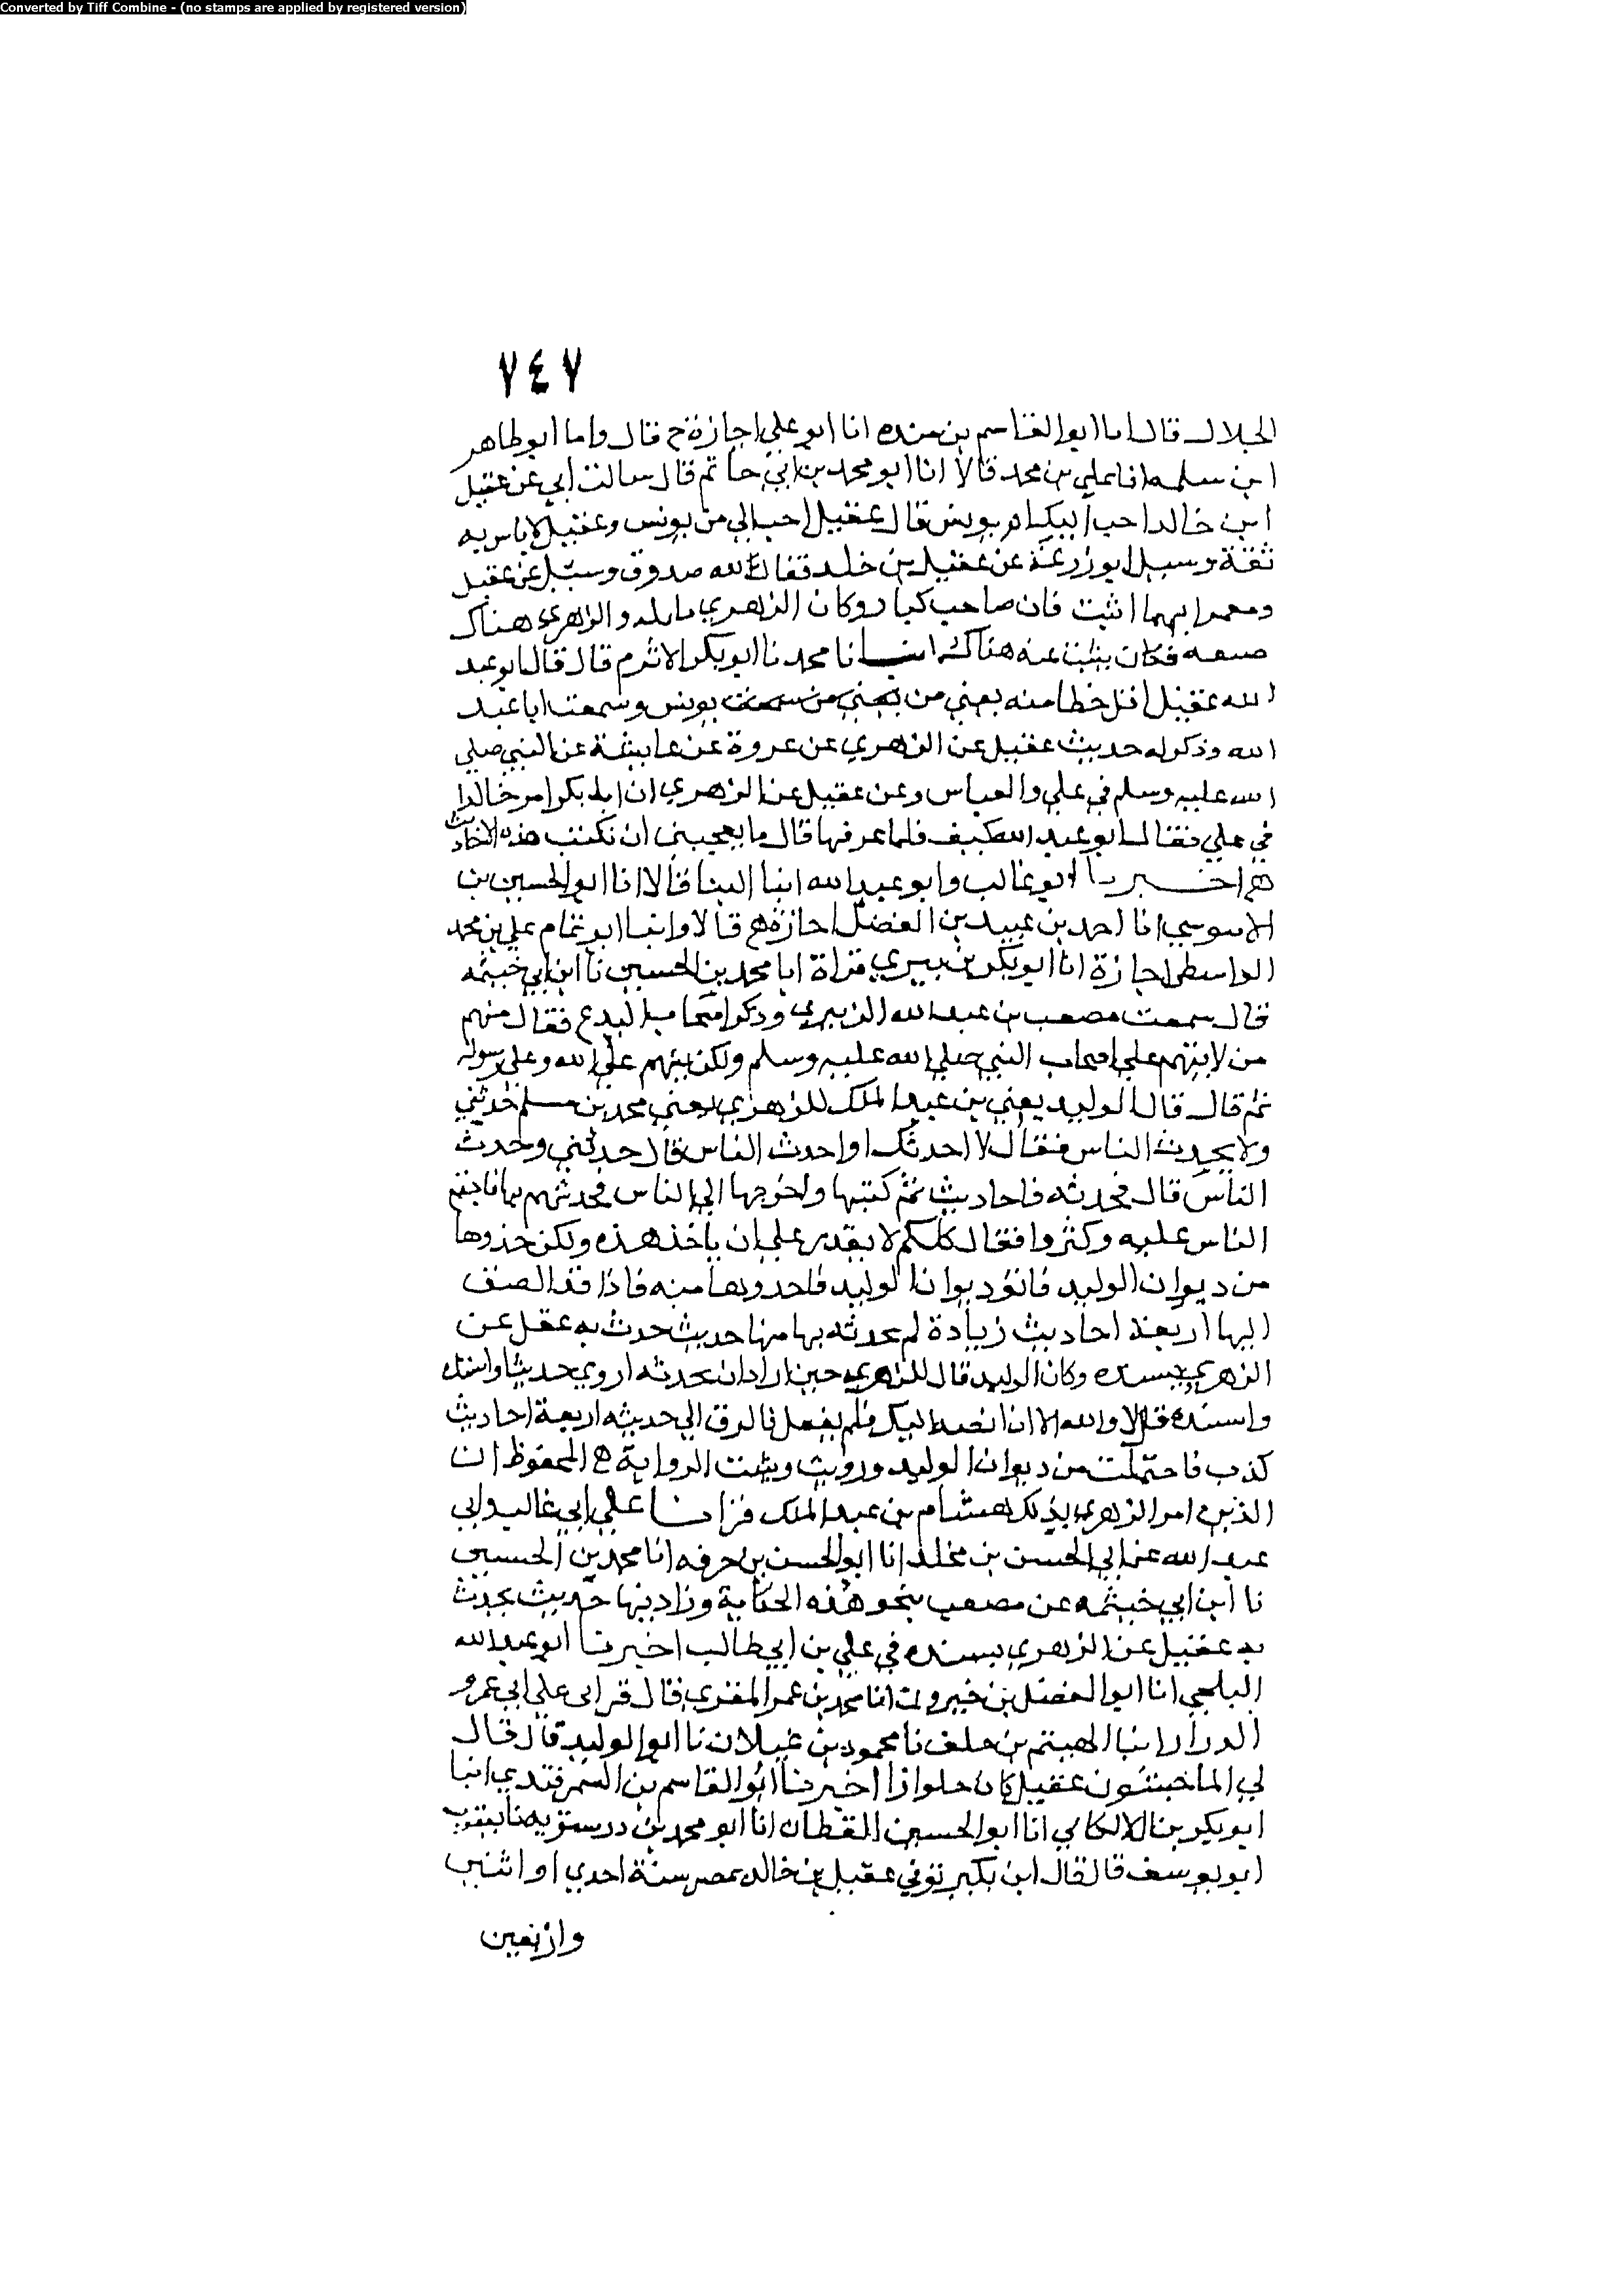 Converted by Tiff Combine - (no stamps are applied by registered version)
٧٤٧
الجلال قالا انا ابوالقاسم بن منده انا ابو علي اجازة ح قال واما ابو طاهر
ابن سلمه انا علي بن محمد قالا انا ابو محمد بن ابي حاتم قال سالت ابي عن عقيل
ابن خالد احب اليك ام يونس قال عقيل احب الي من يونس وعقيل لا باس به
ثقة وسيل ابو زرعة عن عقيل بن خلد فقال صدوق وسئل عن عقيل
ومعمر ايهما اثبت فان صاحب كتاب وكان الزهري بايله والزهري هناك
ضيعه فكان يثبت عنه هناك انبانا محمد نا ابو بكر الاثرم قال قال ابو عبد
الله عقيل اقل خطا منه يعني من يعني من يونس وسمعت ابا عبد
الله وذكر له حديث عقيل عن الزهري عن عروة عن عايشة عن النبي صلي
الله عليه وسلم في علي والعباس وعن عقيل عن الزهري ان ابا بكر امر خالدا
في علي فقال ابو عبد الله كيف فلما عرفها قال ما يعجبني ان نكتب هذه الاحاديث
ح اخبرنا ابو غالب وابو عبد الله ابنا البنا قالا انا ابو الحسين بن
الابنوسي انا احمد بن عبيد بن الفضل اجازة ح قالا وانبا ابو تمام علي بن محمد
الواسطي اجازة انا ابو بكر بن بيري قراة انا محمد بن الحسين نا ابن ابي خيثمه
قال سمعت مصعب بن عبد الله الزبيري وذكر اصحاب البدع فقال منهم
من لا يتهم علي اصحاب النبي صلي الله عليه وسلم ولكن يتهم علي الله وعلي رسوله
ثم قال قال الوليد يعني بن عبد الملك للزهري يعني محمد بن مسلم حدثني
ولا تحدث الناس فقال لا احدثك او احدث الناس قال حدثني وحدث
الناس قال فحدثه فاحاديث ثم كتبها واخرجها الي الناس فحدثهم بها فاجتمع
الناس عليه وكثروا فقال كلكم لا يقدر علي ان ياخذ هذه ولكن خذوها
من ديوان الوليد فاتوا ديوان الوليد فاخذوها منه فاذا قد الصق
اليها اربعة احاديث زيادة لم يحدثه بها منها حديث حدث به عقيل عن
الزهري يسنده وكان الوليد قال للزهري حين اراد ان يحدثه اروي حديثا واسنده
واسنده قال لا والله الا ان انصه اليك فلم يفعل فالزق الي حديثه اربعة احاديث
كذب فاحتملت من ديوان الوليد ورويت وبثت الرواية ح المحفوظ ان
الذي امر الزهري بذلك هشام بن عبد الملك قرانا علي ابي غالب وابي
عبد الله عن ابي الحسن بن مخلد انا ابو الحسن بن خزفه انا محمد بن الحسين
نا ابن ابي خيثمه عن مصعب بنحو هذه الحكاية وزاد فيها حديث يحدث
به عقيل عن الزهري يسنده في علي بن ابي طالب اخبرنا ابو عبد الله
البلخي انا ابو الفضل بن خيرون انا محمد بن عمر المقري قال قرأ لي علي ابي عمرو
الدرار انبا الهيثم بن خلف نا محمود بن غيلان نا ابو الوليد قال قال
لي الماجشون عقيل كان جلوازا اخبرنا ابو القاسم بن السمرقندي انبا
ابو بكر بن اللالكاي انا ابو الحسين القطان انا ابو محمد بن درستويه نا يعقوب
ابو يوسف قال قال ابن بكير توفي عقيل بن خالد بمصر سنة احدي او اثنين
واربعين